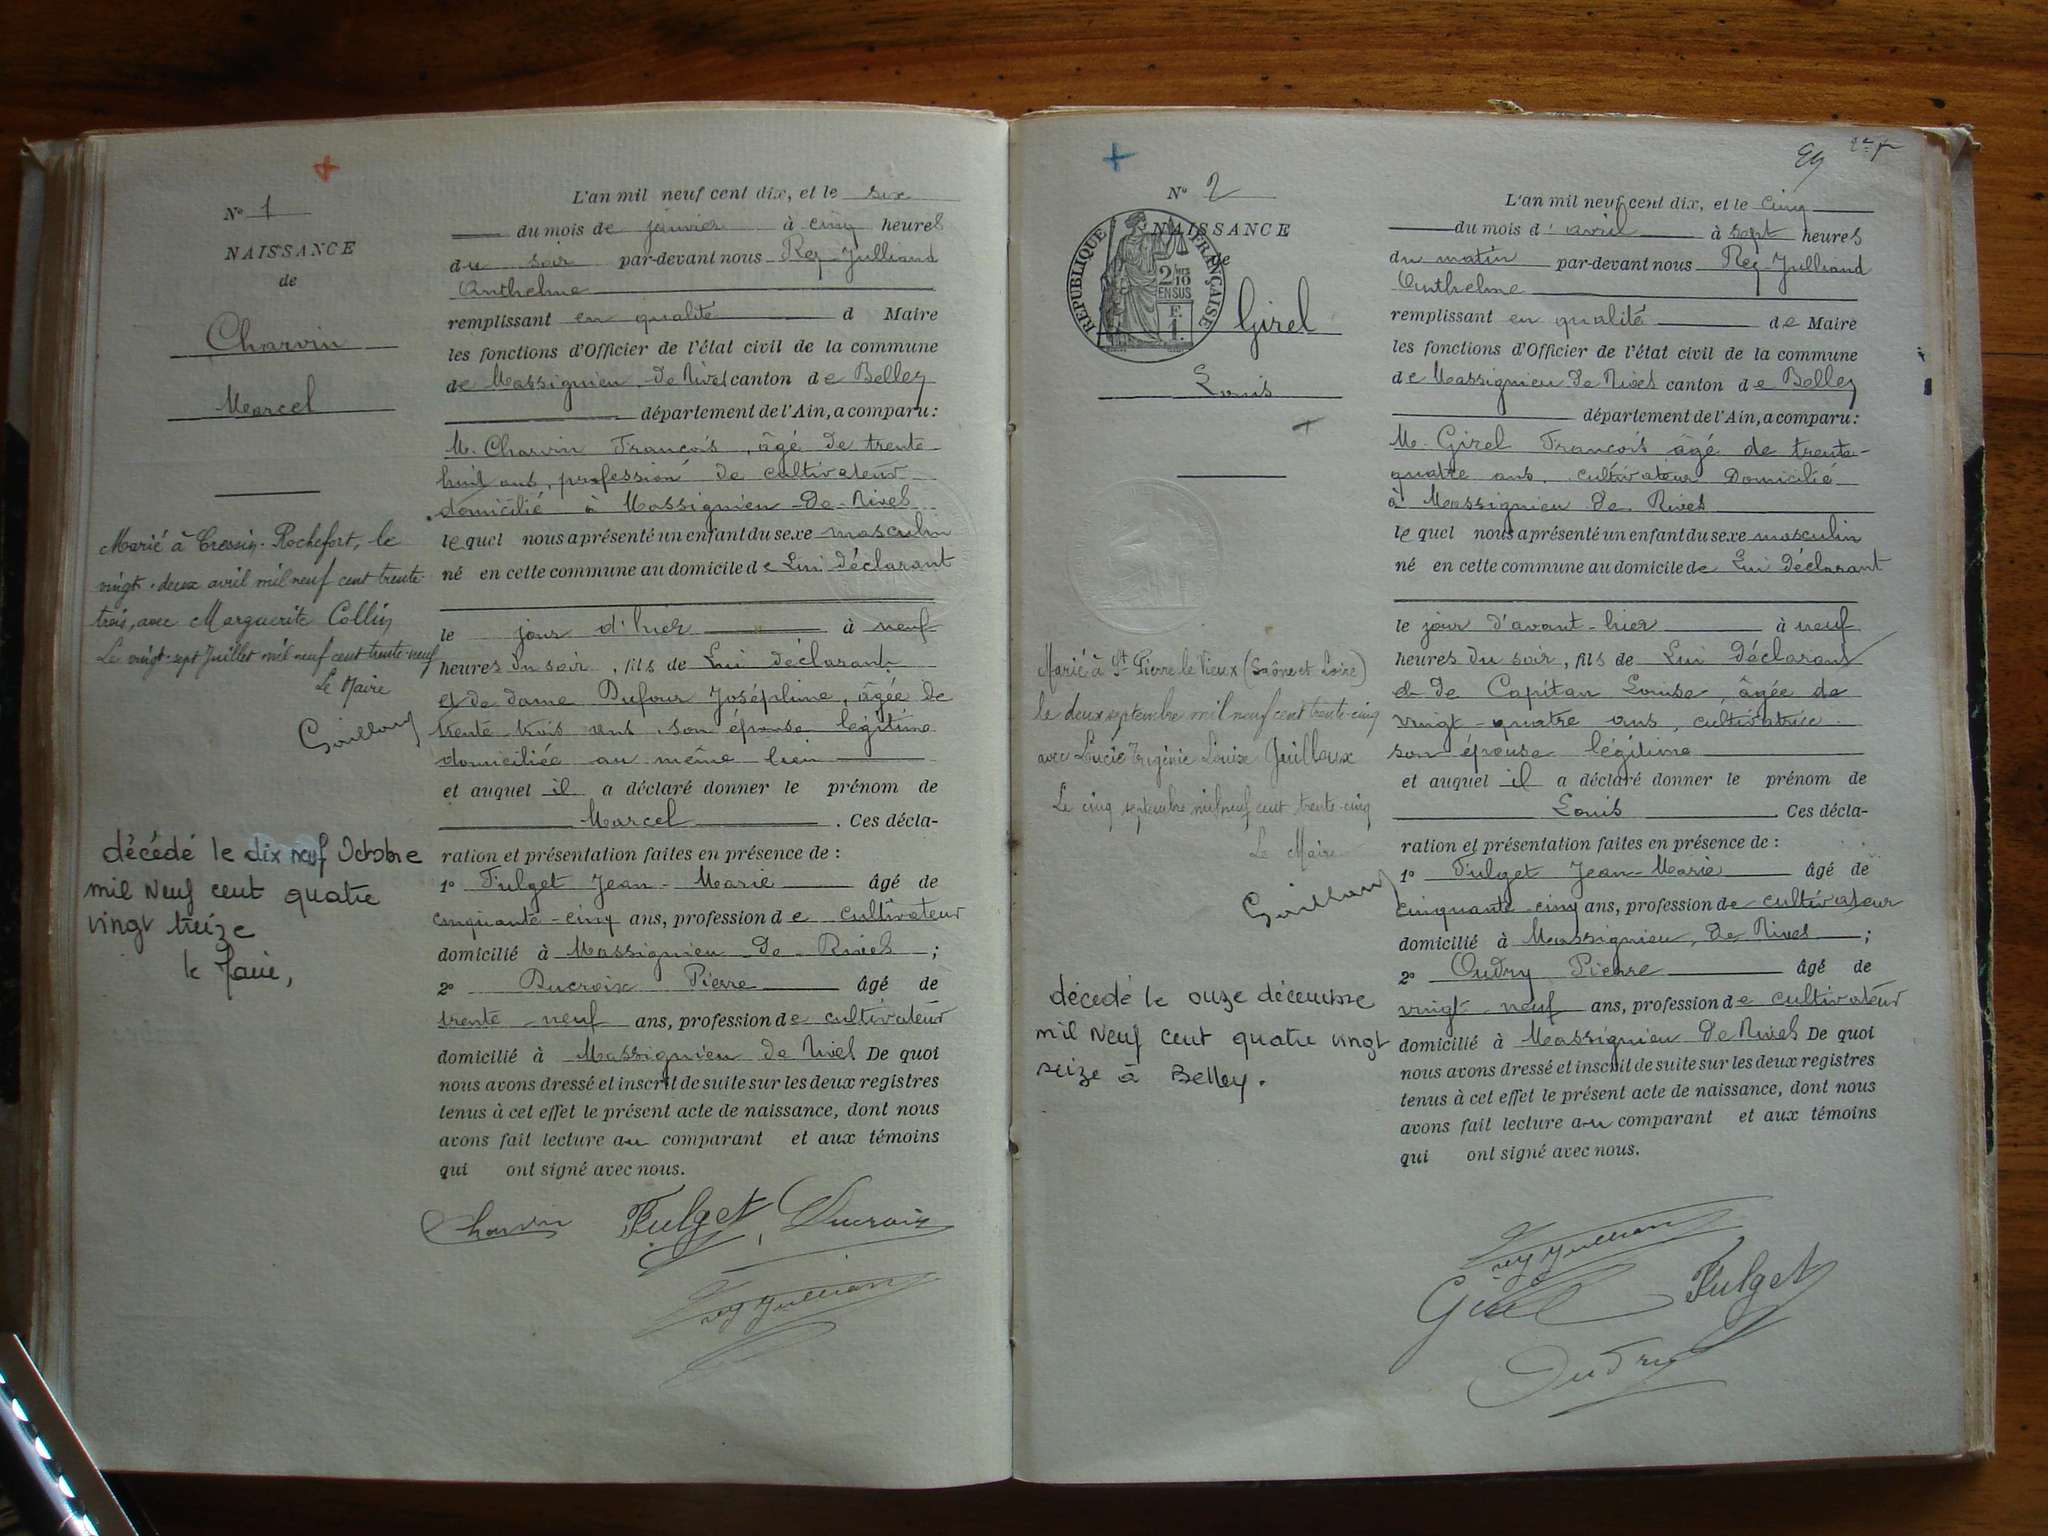 N° 1
NAISSANCE
de
Charvin
Marcel
Marié à Cressin-Rochefort, le
vingt-deux avril mil neuf cent trente-
trois, avec Marguerite Collin
Le vingt-sept Juillet mil neuf cent trente-neuf
Le Maire
décédé le dix neuf Octobre
mil Neuf cent quatre
vingt treize
le Maire,
L'an mil neuf cent dix, et le six
du mois de janvier à cinq heures
du soir par-devant nous Rey-Julliand
Anthelme
remplissant en qualité d Maire
les fonctions d'Officier de l'état civil de la commune
de Massignieu de Rives canton de Belley
département de l'Ain, a comparu :
M. Charvin François, âgé de trente-
huit ans, profession de cultivateur
domicilié à Massignieu-de-Rives
lequel nous a présenté un enfant du sexe masculin
né en cette commune au domicile de Lui déclarant
le jour d'hier à neuf
heures du soir, fils de Lui déclarant
et de dame Dufour Joséphine, âgée de
trente trois ans, son épouse légitime
domiciliée au même lieu
et auquel il a déclaré donner le prénom de
Marcel. Ces décla-
ration et présentation faites en présence de :
1° Fulget Jean-Marie âgé de
cinquante-cinq ans, profession de cultivateur
domicilié à Massignieu-de-Rives ;
2° Ducroix Pierre âgé de
trente-neuf ans, profession de cultivateur
domicilié à Massignieu de Rives De quoi
nous avons dressé et inscrit de suite sur les deux registres
tenus à cet effet le présent acte de naissance, dont nous
avons fait lecture au comparant et aux témoins
qui ont signé avec nous.
Charvin Fulget Ducroix
Rey Julliand
2e fr
N° 2
NAISSANCE
de
RÉPUBLIQUE FRANÇAISE
2/10
EN SUS
F.
1.
Girel
Louis
Marié à St Pierre le Vieux (Saône et Loire)
le deux septembre mil neuf cent trente-cinq
avec Lucie Eugénie Louise Guilloux
Le cinq septembre mil neuf cent trente-cinq
Le Maire
décédé le onze décembre
mil Neuf cent quatre vingt
seize à Belley.
L'an mil neuf cent dix, et le cinq
du mois d'avril à sept heures
du matin par-devant nous Rey-Julliand
Anthelme
remplissant en qualité de Maire
les fonctions d'Officier de l'état civil de la commune
de Massignieu de Rives canton de Belley
département de l'Ain, a comparu :
M. Girel François âgé de trente-
quatre ans, cultivateur domicilié
à Massignieu de Rives
lequel nous a présenté un enfant du sexe masculin
né en cette commune au domicile de Lui déclarant
le jour d'avant-hier à neuf
heures du soir, fils de Lui déclarant
et de Capitan Louise, âgée de
vingt-quatre ans, cultivatrice
son épouse légitime
et auquel il a déclaré donner le prénom de
Louis. Ces décla-
ration et présentation faites en présence de :
1° Fulget Jean-Marie âgé de
cinquante cinq ans, profession de cultivateur
domicilié à Massignieu de Rives ;
2° Oudry Pierre âgé de
vingt-neuf ans, profession de cultivateur
domicilié à Massignieu de Rives De quoi
nous avons dressé et inscrit de suite sur les deux registres
tenus à cet effet le présent acte de naissance, dont nous
avons fait lecture au comparant et aux témoins
qui ont signé avec nous.
Rey Julliand
Girel Fulget
Oudry